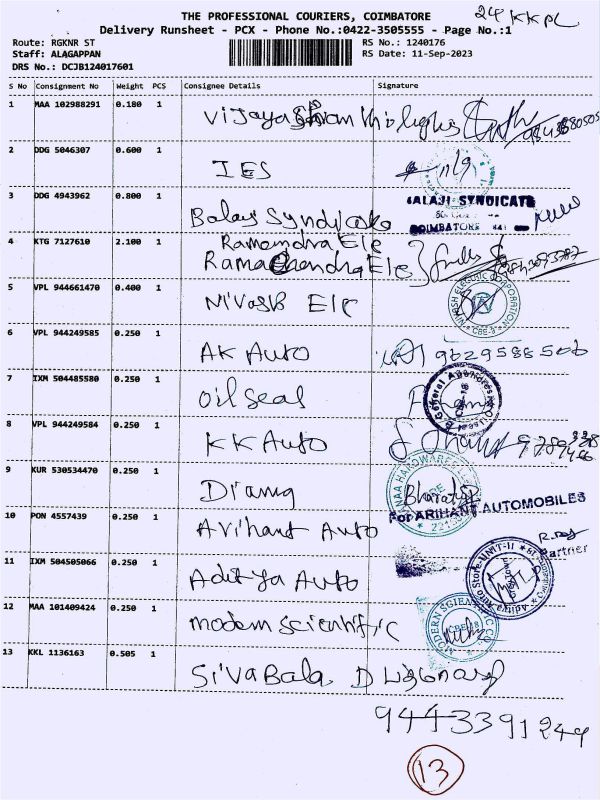 THE PROFESSIONAL COURIERS, COIMBATORE
24 KKPL
Delivery Runsheet - PCX - Phone No.:0422-3505555 - Page No.:1
Route: RGKNR ST
RS No.: 1240176
Staff: ALAGAPPAN
RS Date: 11-Sep-2023
DRS No.: DCJB124017601
S No Consignment No Weight PCS Consignee Details Signature
1 MAA 102988291 0.180 1 Vijaya
2 DDG 5046307 0.600 1 IES
3 DDG 4943962 0.800 1 Balaji Syndicate
BALAJI SYNDICATE
COIMBATORE 641
4 KTG 7127610 2.100 1 Ramanandra Ele
Ramachandra Ele
5 VPL 944661470 0.400 1 Nivash Ele
ELECTRIC CORPORATION
CBE-3
6 VPL 944249585 0.250 1 AK Auto 9629588506
7 IXM 504485580 0.250 1 Oil Seal
8 VPL 944249584 0.250 1 KK Auto
9 KUR 530534470 0.250 1 Diamq
HARDWARE
Bharathi
For ARIHANT AUTOMOBILES
10 PON 4557439 0.250 1 Arihant Auto
R. Raj
Partner
11 IXM 504505066 0.250 1 Aditya Auto
Aditya Auto Store-UNIT-II
12 MAA 101409424 0.250 1 modern scientific
MODERN SCIENTIFIC CO
CBE-18
13 KKL 1136163 0.505 1 Siva Bala
9443391244
13